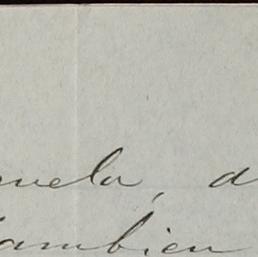 uela, d
tambien